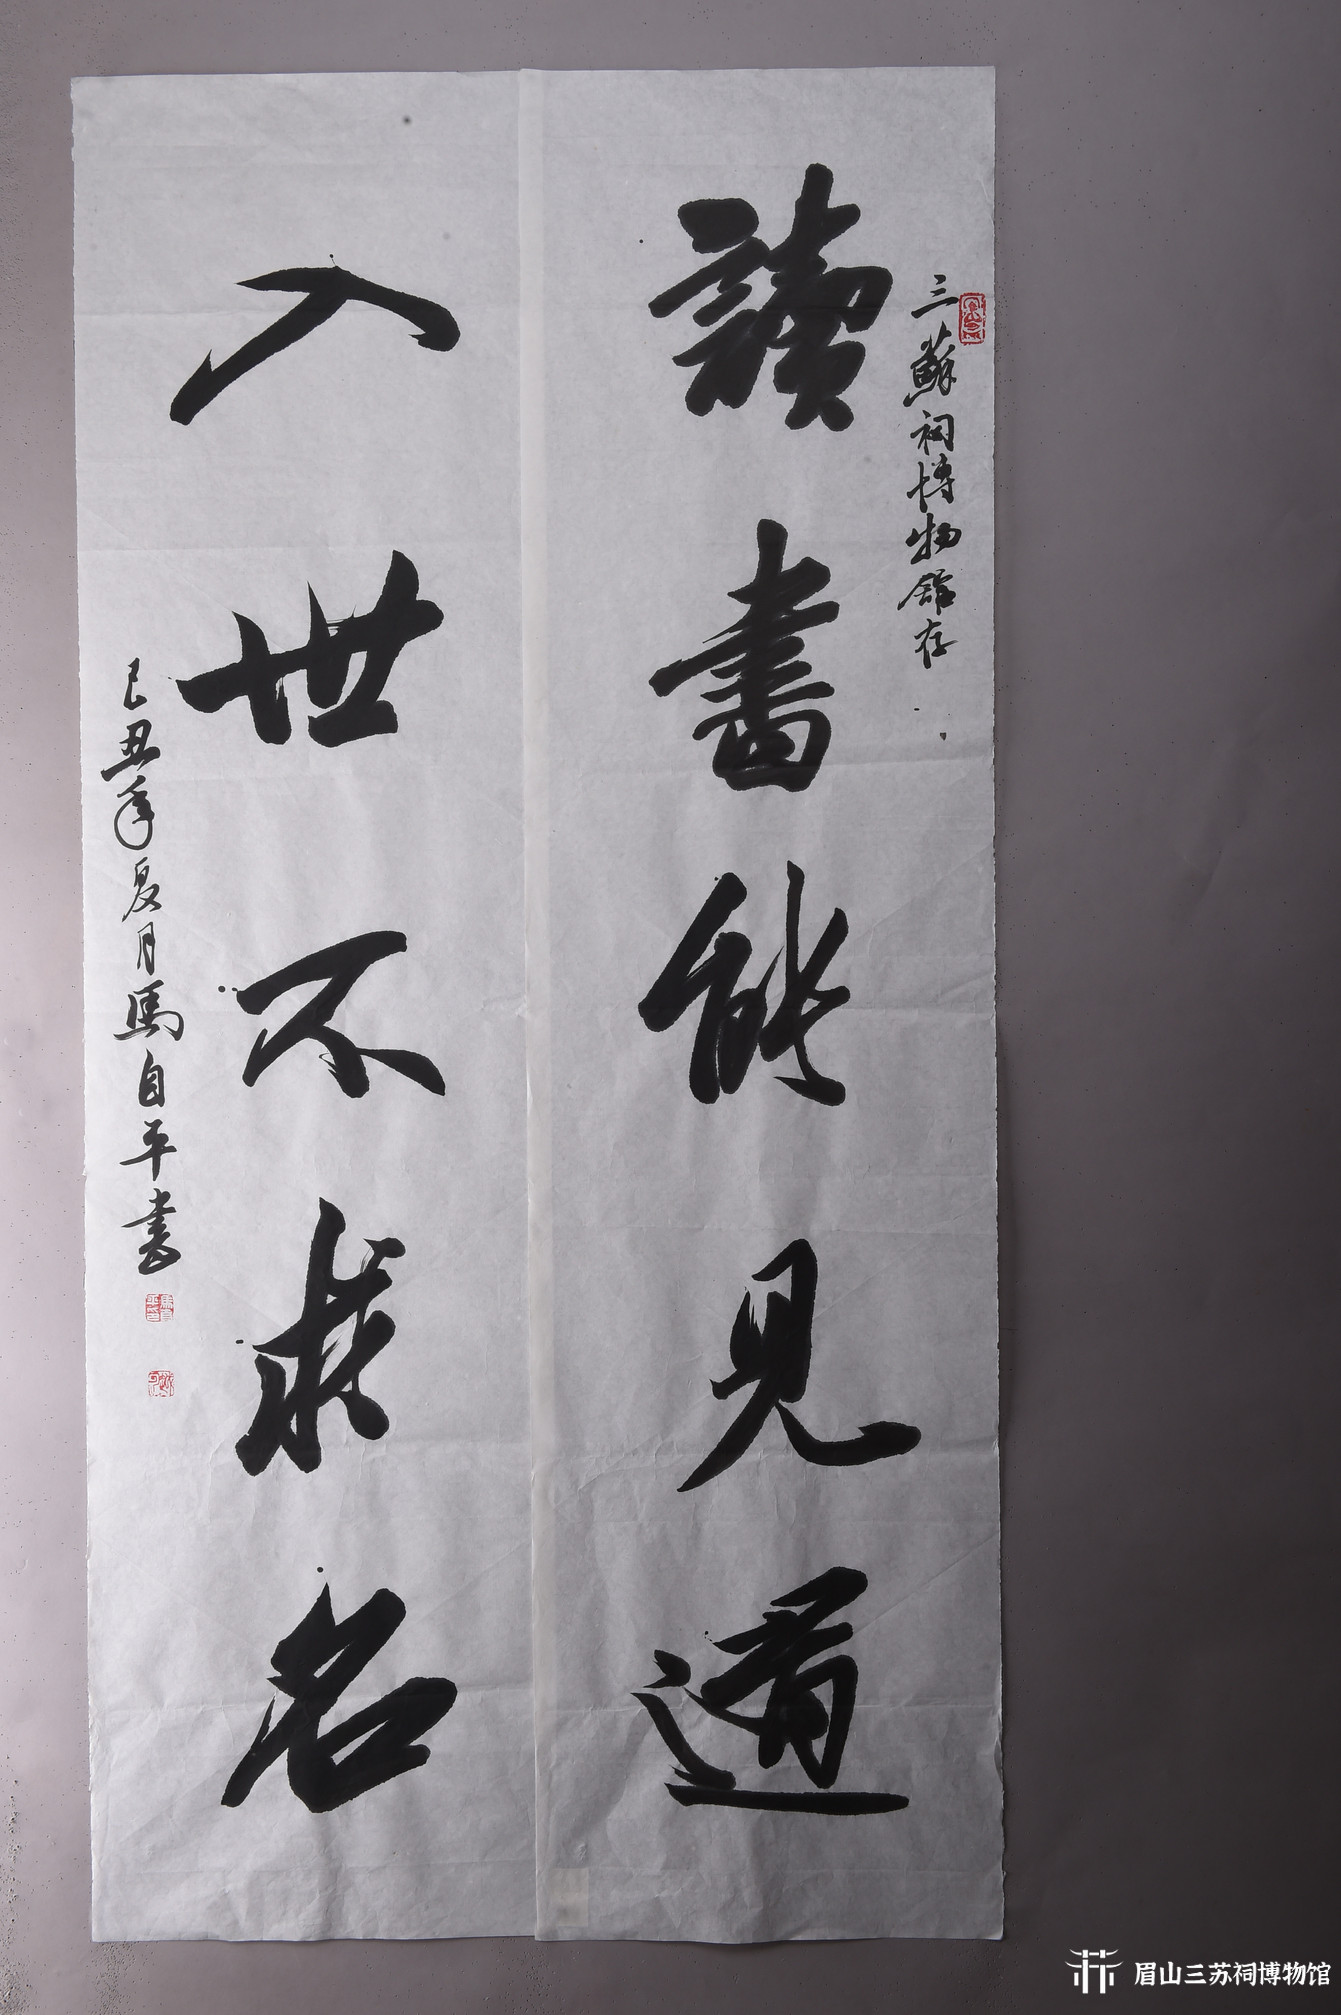 三蘇祠博物館存
讀書能見道
入世不求名
己丑年夏月馬自平書
眉山三苏祠博物馆